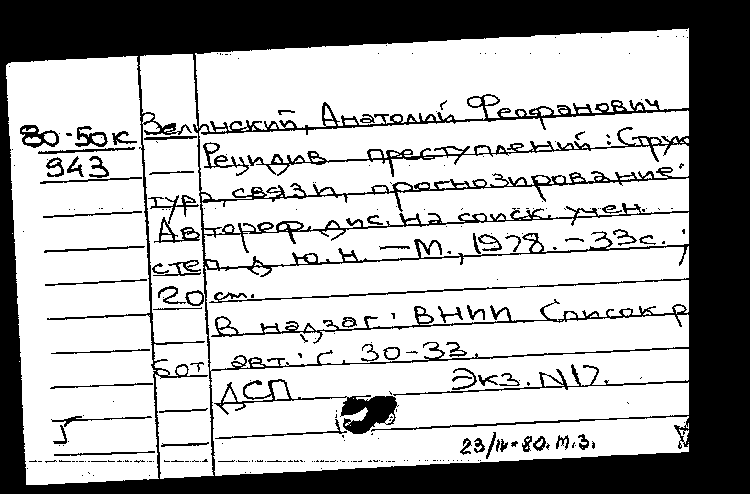 80-50к Зелинский, Анатолий Феофанович
943 Рецидив преступлений: Струк
тура, связи, прогнозирование:
Автореф. дис. на соиск. учен.
степ. д. ю. н. — М., 1978. - 33с. ;
20 cm.
В надзаг: ВНИИ Список р
бот авт.: с. 30-33.
ДСП. Экз. N17.
23/IV-80. М.З.